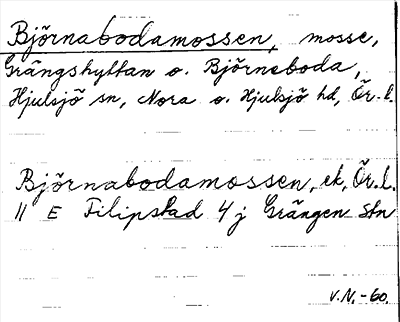 Björnabodamossen, mosse,
Grängshyttan o. Björneboda,
Hjulsjö sn, Nora o. Hjulsjö hd, Ör. l.
Björnabodamossen, ek, Ör. l.
11 E Filipstad 4 j Grängen Stn
V.N. -60.